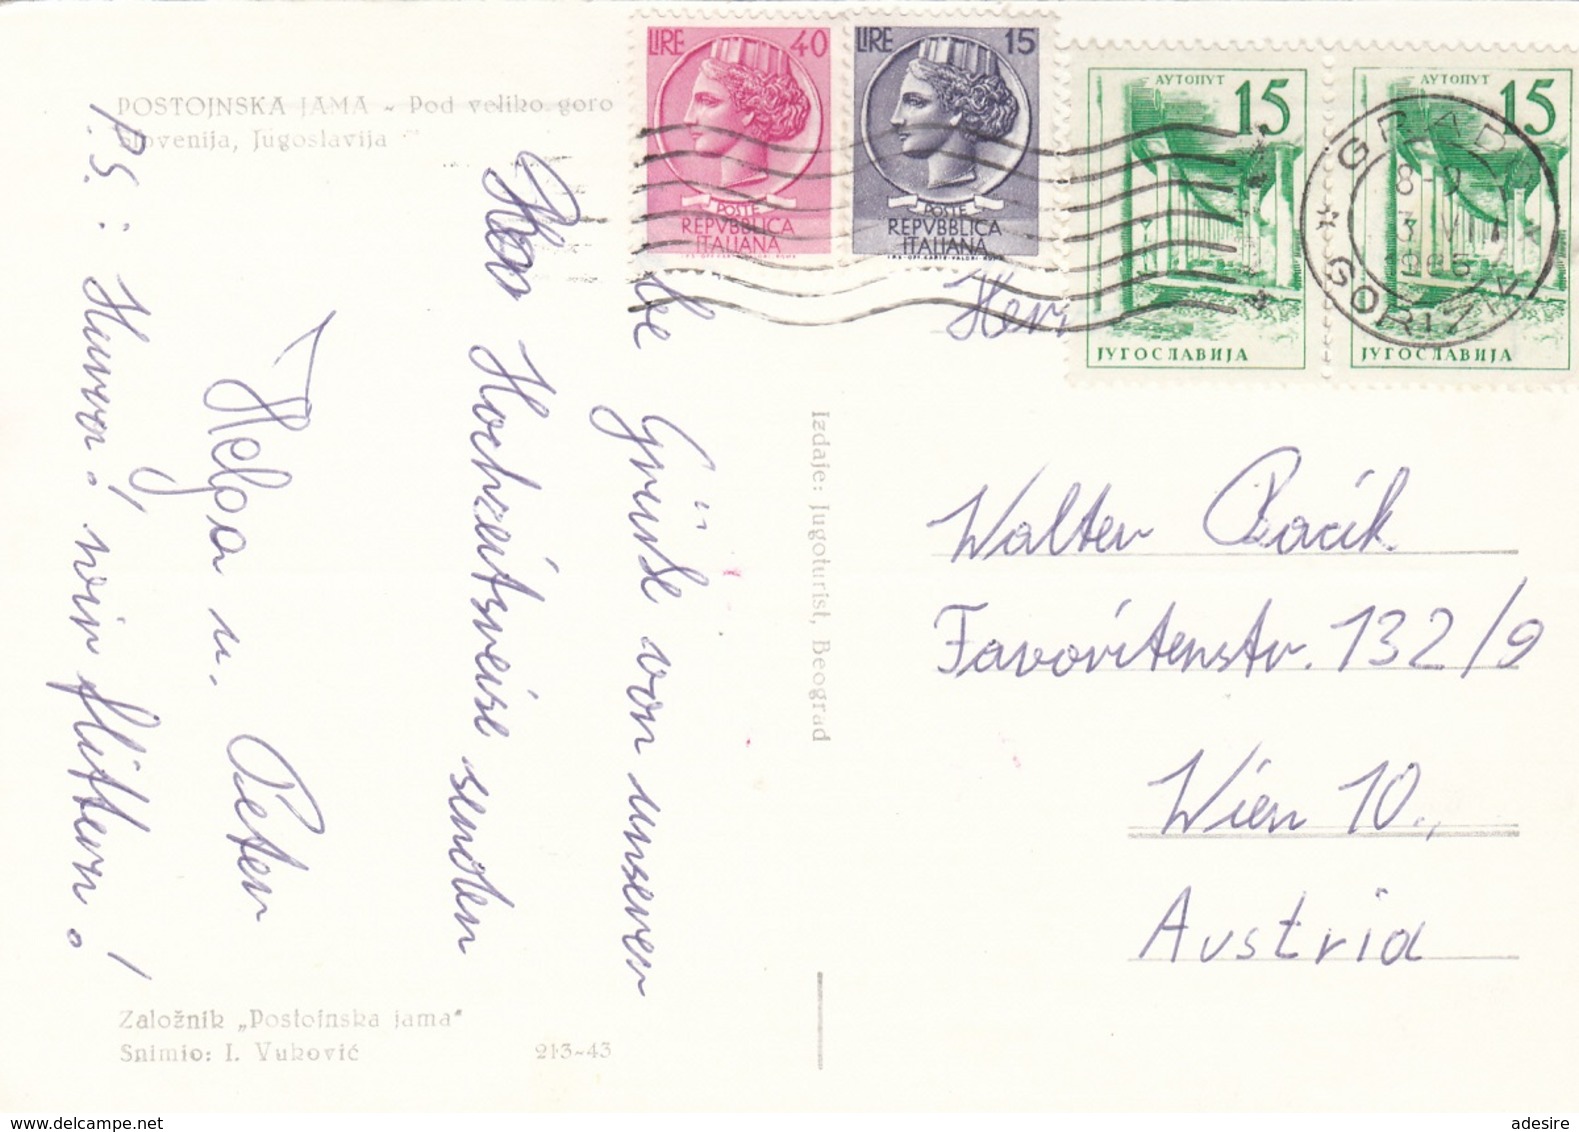 POSTOJNSKA JAMA - Pod veliko goro
Slovenija, Jugoslavija
LIRE 40
POSTE
REPVBBLICA
ITALIANA
I.P.S.-OFF. CARTE-VALORI-ROMA
LIRE 15
POSTE
REPVBBLICA
ITALIANA
I.P.S.-OFF. CARTE-VALORI-ROMA
АУТОПУТ
15
ЈУГОСЛАВИЈА
АУТОПУТ
15
ЈУГОСЛАВИЈА
GORIZIA
Grüße von unserer
Hochzeitsreise senden
Helga u. Peter
P.S.: Hurra! wir flittern!
Izdaje: Jugoturist, Beograd
Herr
Walter Pacik
Favoritenstr. 132/9
Wien 10.,
Austria
Založnik „Postojnska jama"
Snimio: I. Vuković
213-43
adesire